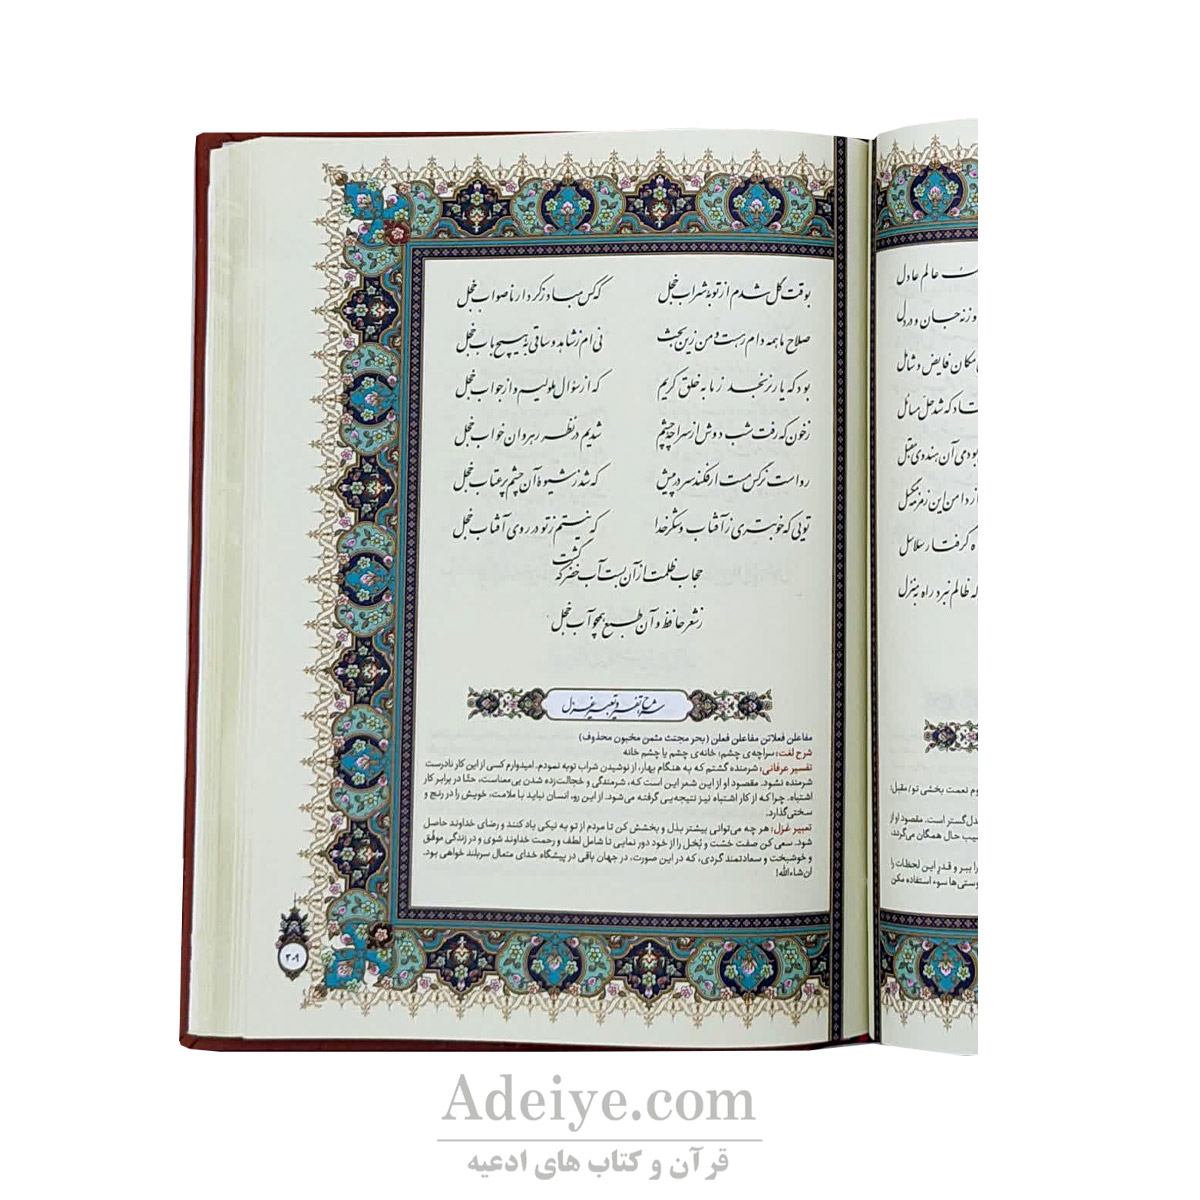 ـب عالم عادل
و زنه جان و دردل
مکان فایض و شامل
ـتاد که شد حل مسائل
بودمی آن هندوی مقبل
از دامن این زمزمه مگسل
ه گرفتار سلاسل
که ظالم نبرد راه بمنزل
وم نعمت بخشی تو/ مقبل:
ـدل‌گستر است. مقصود او از
ـیب حال همگان می‌گرند،
را ببر و قدرِ این لحظات را
ـوستی‌ها سوء استفاده مکن
بوقت گل شدم از توبهٔ شراب خجل که کس مباد ز کردار ناصواب خجل
صلاح ما همه دام رهست و من زین بحث نی ام ز شاهد و ساقی به هیچ باب خجل
بود که یار نرنجد ز ما به خلق کریم که از سؤال ملولیم و از جواب خجل
ز خون که رفت شب دوش از سراچه چشم شدیم در نظر رهروان خواب خجل
رواست نرگس مست ار فکند سر در پیش که شد ز شیوهٔ آن چشم پر عتاب خجل
تویی که خوبتری ز آفتاب و شکر خدا که نیستم ز تو در روی آفتاب خجل
حجاب ظلمت از آن بست آب خضر که گشت
ز شعر حافظ و آن طبع همچو آب خجل
شرح، تفسیر و تعبیر غزل
مفاعلن فعلاتن مفاعلن فعلن (بحر مجتث مثمن مخبون محذوف)
شرح لغت: سراچه‌ی چشم: خانه‌ی چشم یا چشم خانه
تفسیر عرفانی: شرمنده گشتم که به هنگام بهار، از نوشیدن شراب توبه نمودم. امیدوارم کسی از این کار نادرست
شرمنده نشود. مقصود او از این شعر این است که، شرمندگی و خجالت‌زده شدن بی‌معناست، حتّا در برابر کار
اشتباه. چرا که از کار اشتباه نیز نتیجه‌یی گرفته می‌شود. از این رو، انسان نباید با ملامت، خویش را در رنج و
سختی گذارد.
تعبیر غزل: هر چه می‌توانی بیشتر بذل و بخشش کن تا مردم از تو به نیکی یاد کنند و رضای خداوند حاصل
شود. سعی کن صفت خسّت و بُخل را از خود دور نمایی تا شامل لطف و رحمت خداوند شوی و در زندگی موفّق
و خوشبخت و سعادتمند گردی، که در این صورت، در جهان باقی در پیشگاه خدای متعال سربلند خواهی بود.
ان‌شاءالله!
۳۰۹
Adeiye.com
قرآن و کتاب های ادعیه